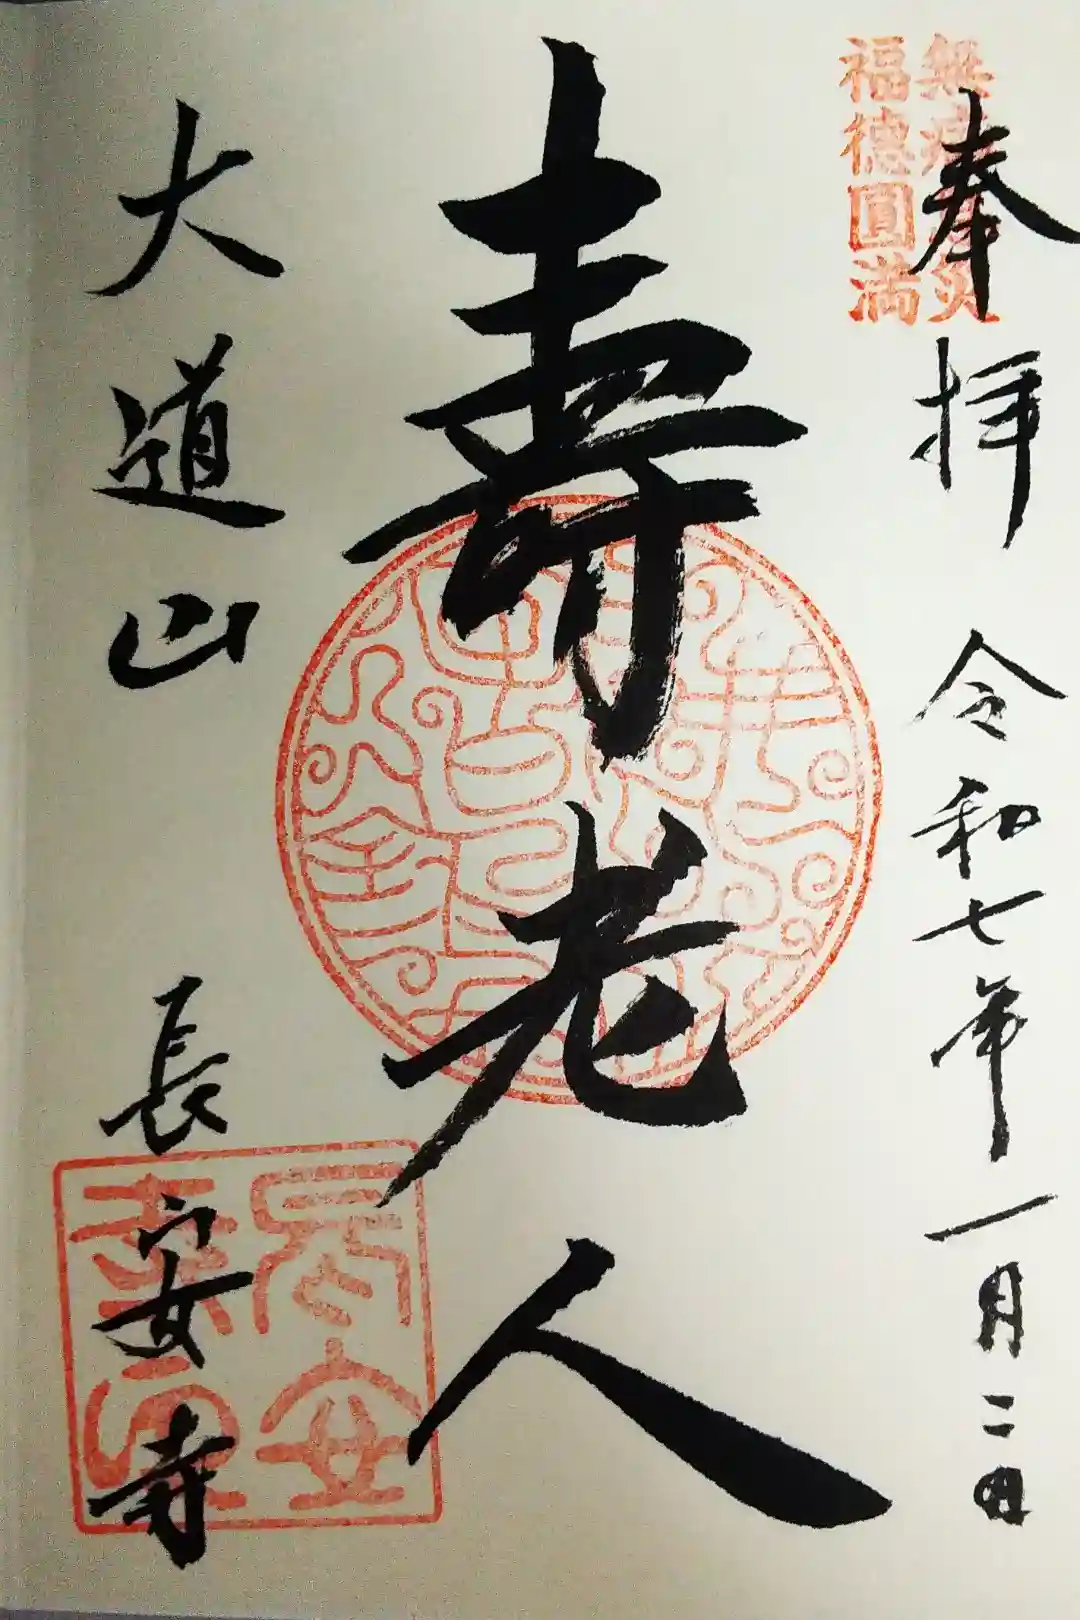 奉拝 令和七年一月二日
福徳圓満
寿老人
大道山 長安寺
長安